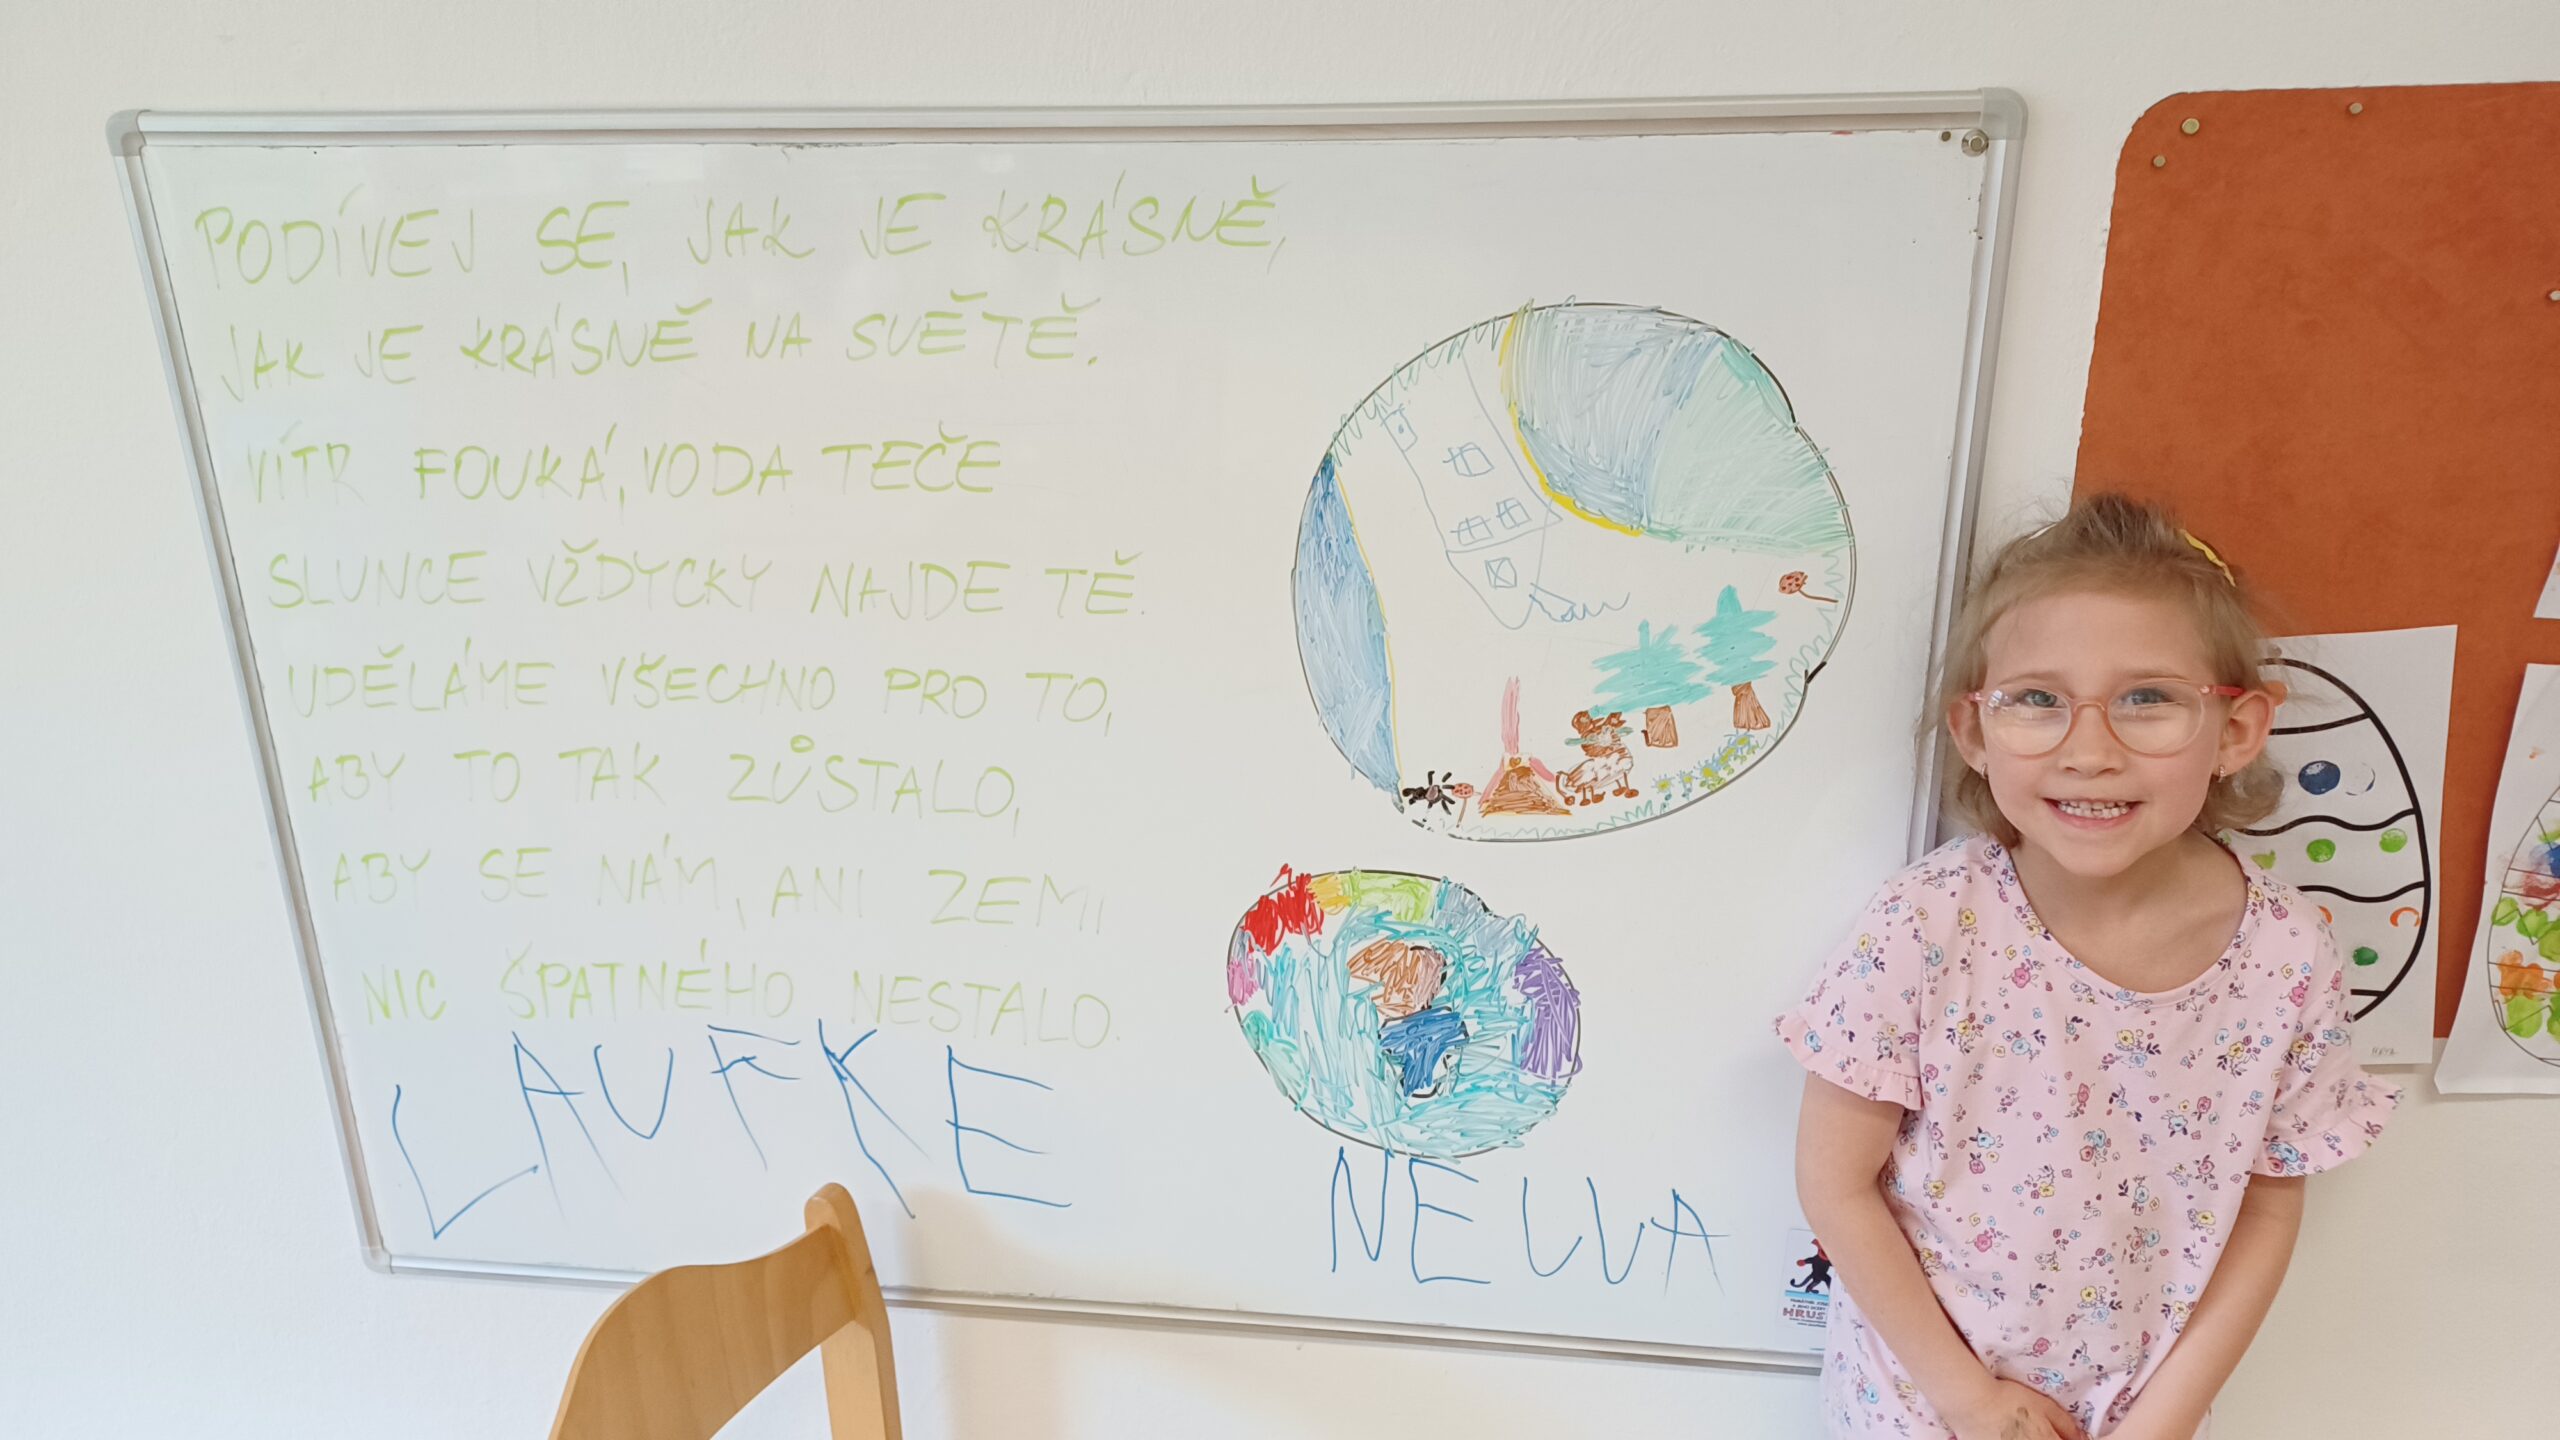 PODÍVEJ SE, JAK JE KRÁSNĚ,
JAK JE KRÁSNĚ NA SVĚTĚ.
VÍTR FOUKÁ, VODA TEČE
SLUNCE VŽDYCKY NAJDE TĚ.
UDĚLÁME VŠECHNO PRO TO,
ABY TO TAK ZŮSTALO,
ABY SE NÁM, ANI ZEMI
NIC ŠPATNÉHO NESTALO.
LAUFKE
NELLA
HRUŠ